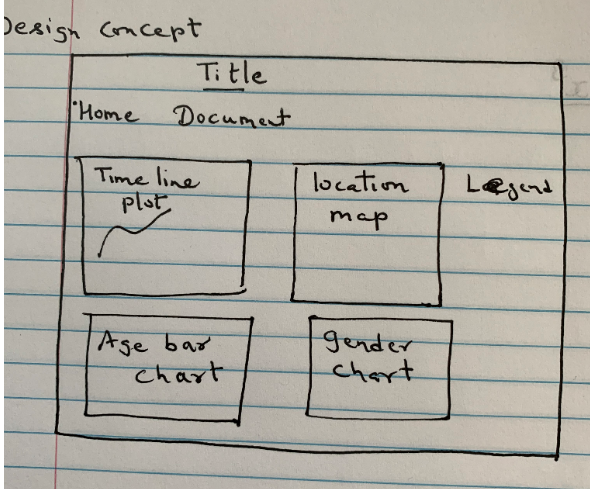 Design concept
Title
Home Document
Time line
plot
location
map
Legend
Age bar
chart
gender
chart